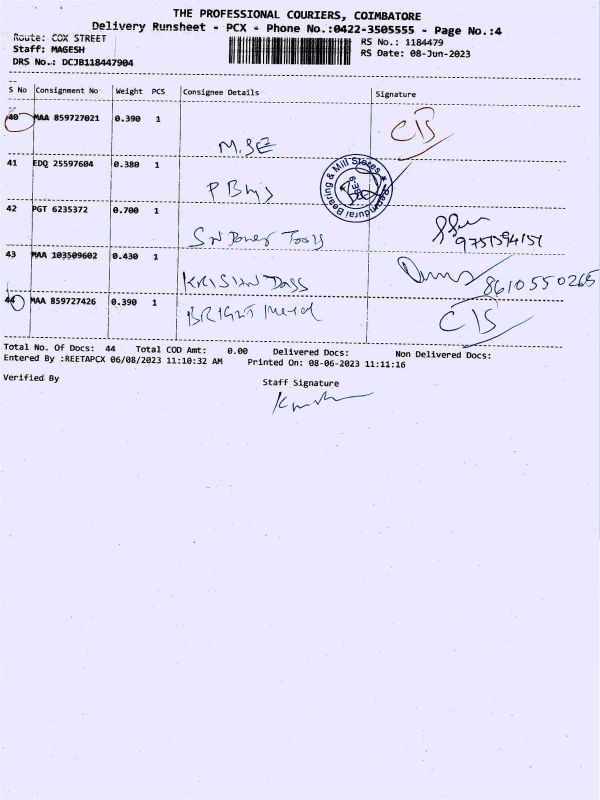 THE PROFESSIONAL COURIERS, COIMBATORE
Delivery Runsheet - PCX - Phone No.:0422-3505555 - Page No.:4
Route: COX STREET
RS No.: 1184479
Staff: MAGESH
RS Date: 08-Jun-2023
DRS No.: DCJB118447904
S No Consignment No Weight PCS Consignee Details Signature
40 MAA 859727021 0.390 1
CIS
M.SE
41 EDQ 25597604 0.380 1
Bearing & Mill Stores
P
42 PGT 6235372 0.700 1
43 MAA 103509602 0.430 1
8610550265
KRISHN DASS
44 MAA 859727426 0.390 1
BRIGHT Metal
CIS
Total No. Of Docs: 44 Total COD Amt: 0.00 Delivered Docs: Non Delivered Docs:
Entered By :REETAPCX 06/08/2023 11:10:32 AM Printed On: 08-06-2023 11:11:16
Verified By
Staff Signature